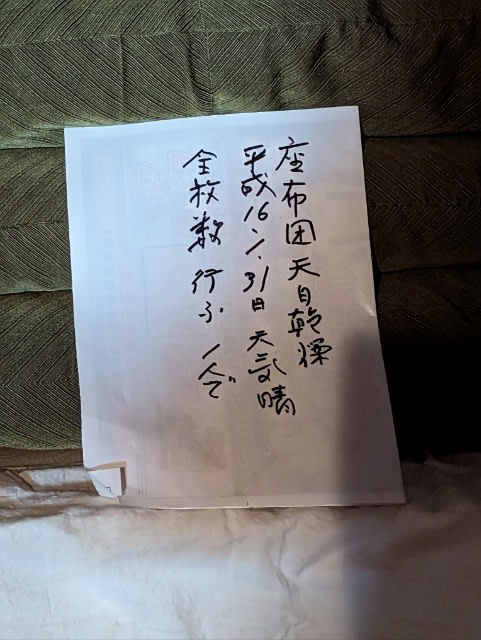 座布団天日乾燥
平成16.1.31日 天気晴
全枚数 行ふ 1人で